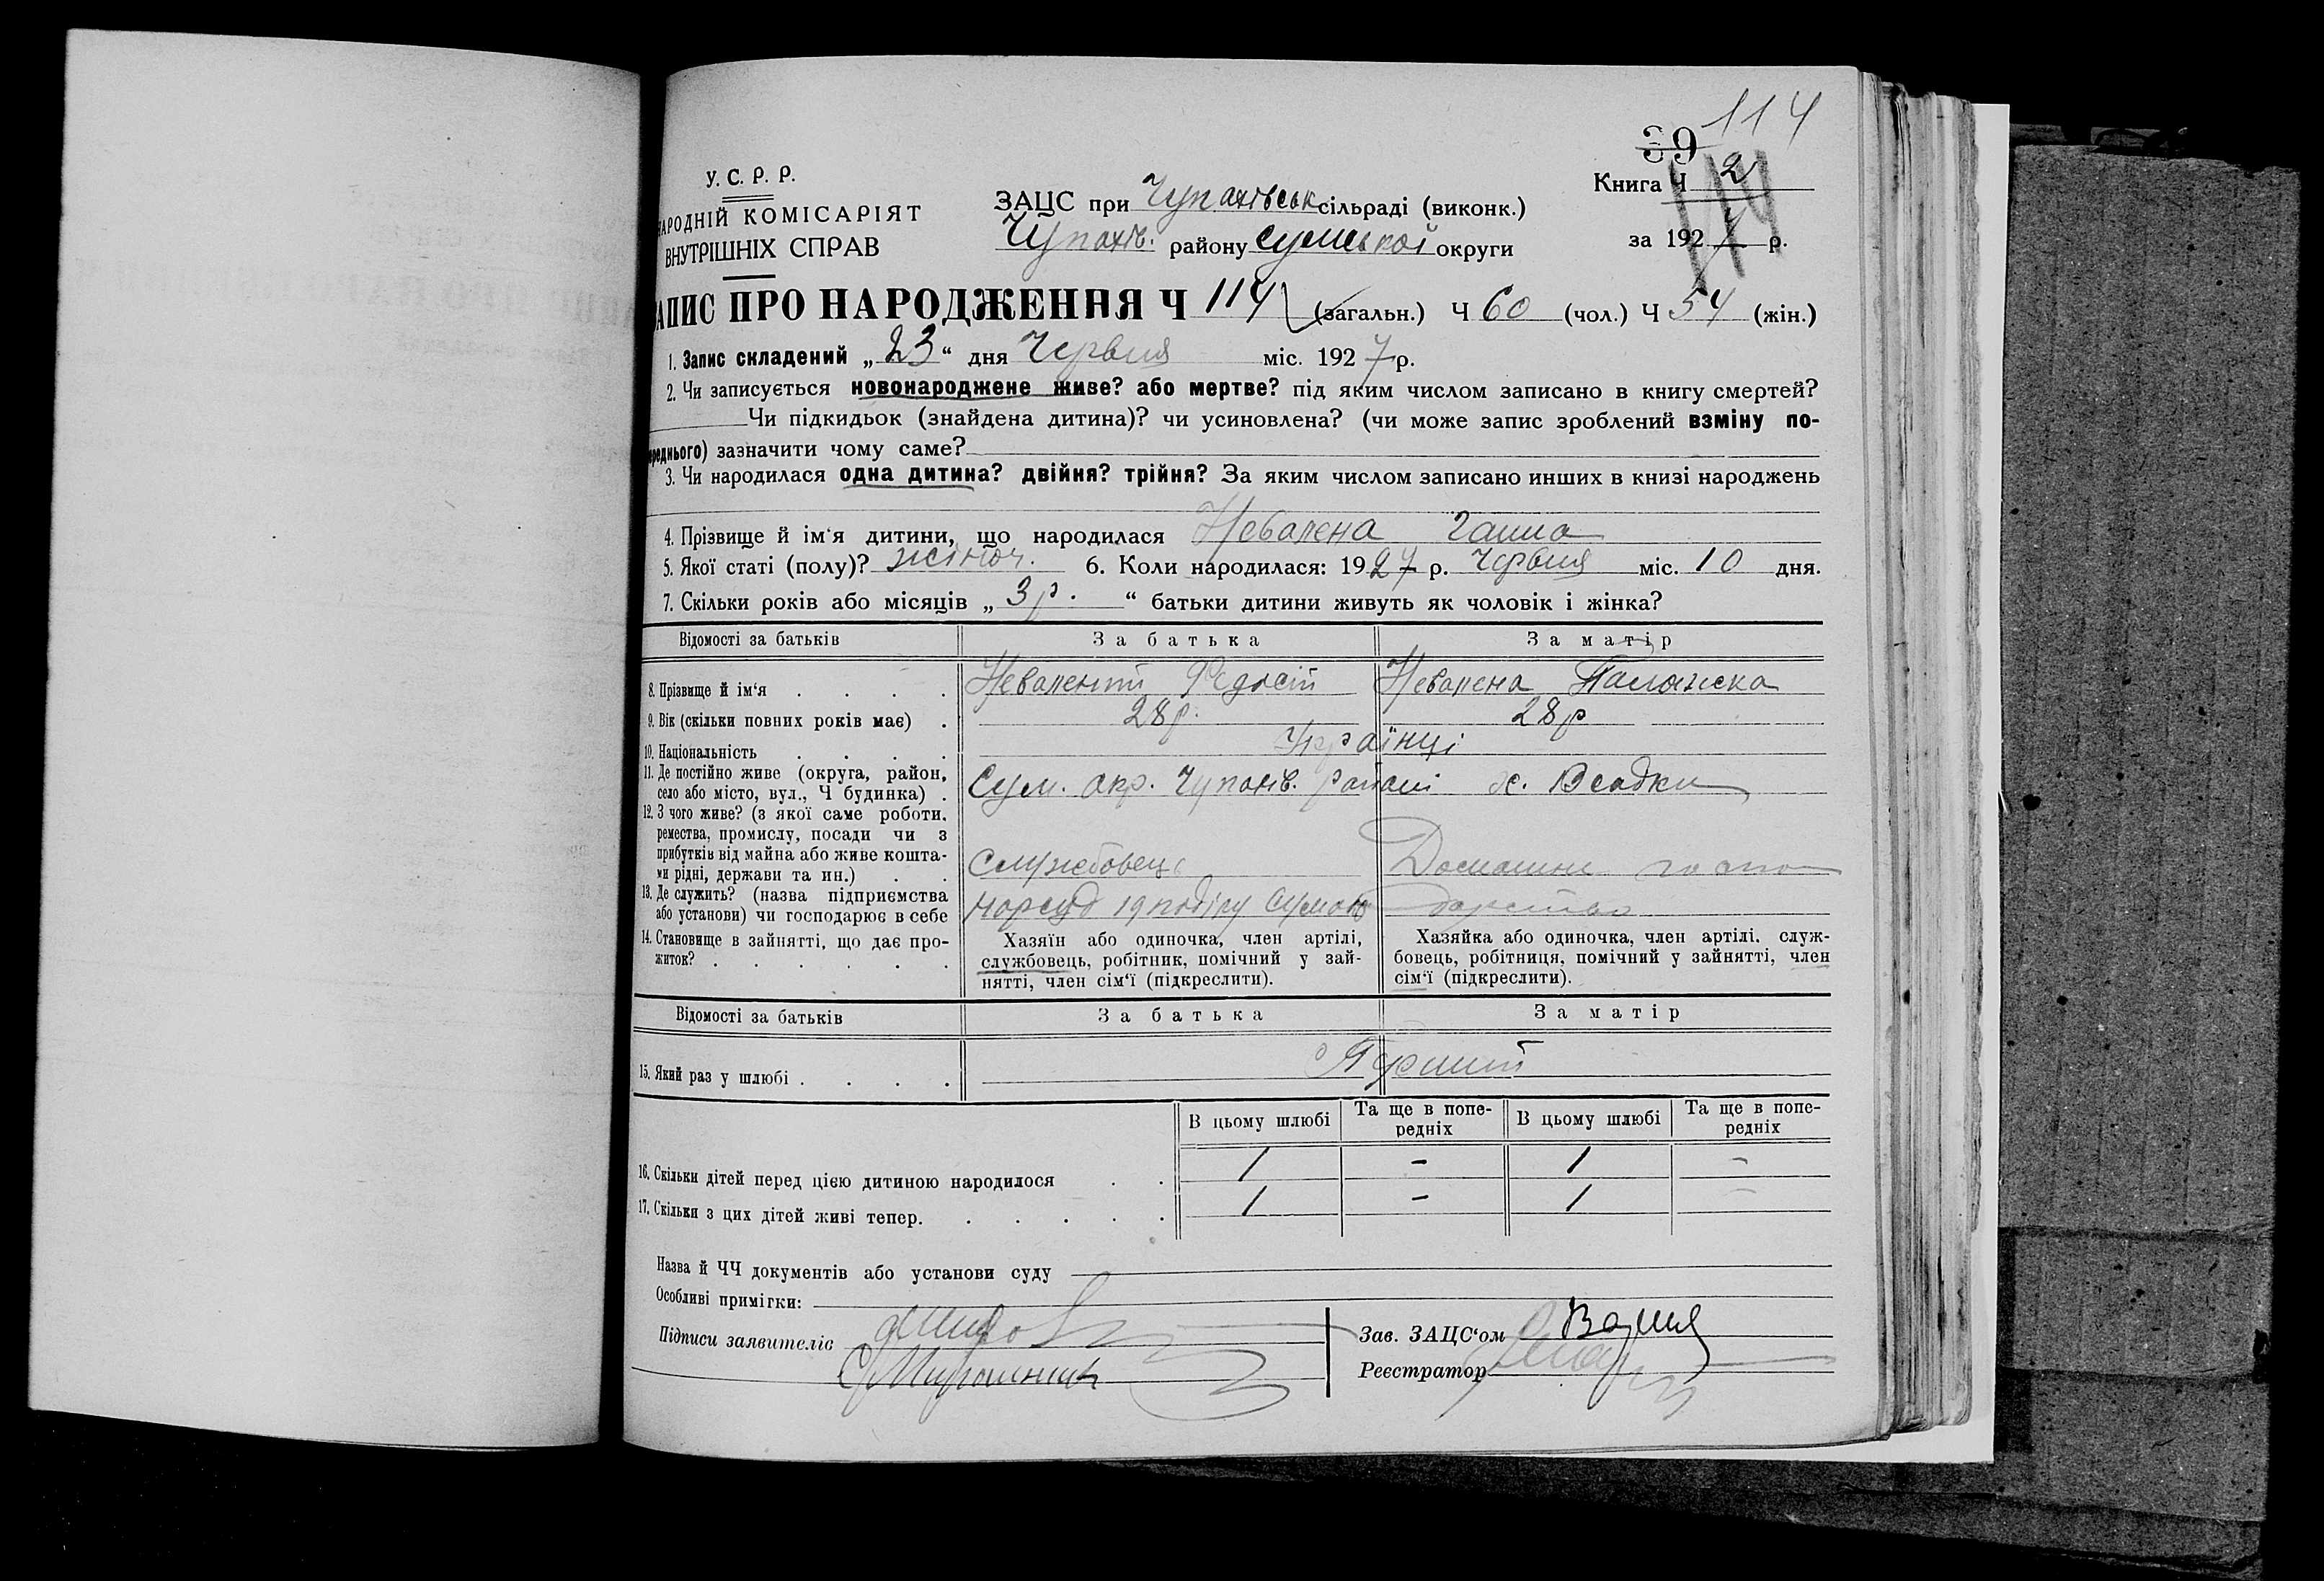 114
39
У. С. Р. Р.
Книга Ч 2
114
НАРОДНІЙ КОМІСАРІЯТ
ВНУТРІШНІХ СПРАВ
ЗАЦС при Чупахівськ сільраді (виконк.)
Чупахів. району Сумської округи
за 1927 р.
АПИС ПРО НАРОДЖЕННЯ Ч 114 (загальн.) Ч 60 (чол.) Ч 54 (жін.)
1. Запис складений „23“ дня Червня міс. 1927 р.
2. Чи записується новонароджене живе? або мертве? під яким числом записано в книгу смертей?
Чи підкидьок (знайдена дитина)? чи усиновлена? (чи може запис зроблений взміну по-
переднього) зазначити чому саме?
3. Чи народилася одна дитина? двійня? трійня? За яким числом записано инших в книзі народжень
4. Прізвище й ім‘я дитини, що народилася Невалена Ганна
5. Якої статі (полу)? жіноч. 6. Коли народилася: 1927 р. Червня міс. 10 дня.
7. Скільки років або місяців „3 р.“ батьки дитини живуть як чоловік і жінка?
Відомості за батьків За батька За матір
8. Прізвище й ім‘я . . . . Невалений Федосій Невалена Палажка
9. Вік (скільки повних років має) . 28 р. 28 р
10. Національність . . . . Українці
11. Де постійно живе (округа, район,
село або місто, вул., Ч будинка) . Сум. окр. Чупахів. район х. Всадки
12. З чого живе? (з якої саме роботи,
ремества, промислу, посади чи з
прибутків від майна або живе кошта-
ми рідні, держави та ин.) . . Службовець Домашнє госпо
13. Де служить? (назва підприємства
або установи) чи господарює в себе Нарсуд 19 дарство
14. Становище в зайнятті, що дає про-
житок? . . . . . .
Хазяїн або одиночка, член артілі,
службовець, робітник, помічний у зай-
нятті, член сім‘ї (підкреслити).
Хазяйка або одиночка, член артілі, служ-
бовець, робітниця, помічний у зайнятті, член
сім‘ї (підкреслити).
Відомості за батьків За батька За матір
15. Який раз у шлюбі . . . . Перший
В цьому шлюбі Та ще в попе-редніх В цьому шлюбі Та ще в попе-редніх
16. Скільки дітей перед цією дитиною народилося . . 1 - 1 -
17. Скільки з цих дітей живі тепер. . . . . . 1 - 1 -
Назва й ЧЧ документів або установи суду
Особливі примітки:
Підписи заявителів
Мирошник
Зав. ЗАЦС‘ом
Реєстратор